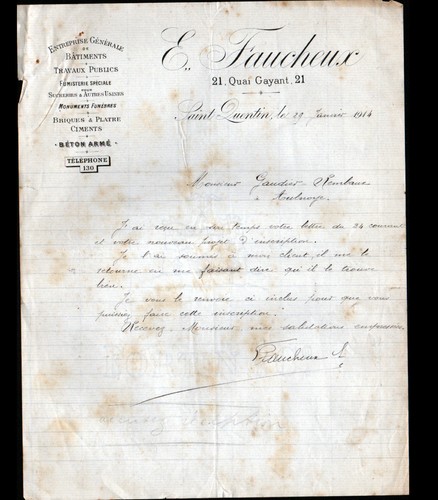 ENTREPRISE GÉNÉRALE
DE
BÂTIMENTS
TRAVAUX PUBLICS
FUMISTERIE SPÉCIALE
POUR
SUCRERIES & AUTRES USINES
MONUMENTS FUNÈBRES
BRIQUES & PLATRE
CIMENTS
BÉTON ARMÉ
TÉLÉPHONE
130
E. Faucheux
21, Quai Gayant, 21
Saint-Quentin, le 29 Janvier 1914
Monsieur Gaudier-Rembaux
à Aulnoye
J'ai reçu en son temps votre lettre du 24 courant
et votre nouveau projet d'inscription.
Je l'ai soumis à mon client, il me le
retourne en me faisant dire qu'il le trouve
bien.
Je vous le renvoie ci inclus pour que vous
puissiez faire cette inscription.
Recevez, Monsieur, mes salutations empressées
Faucheux E